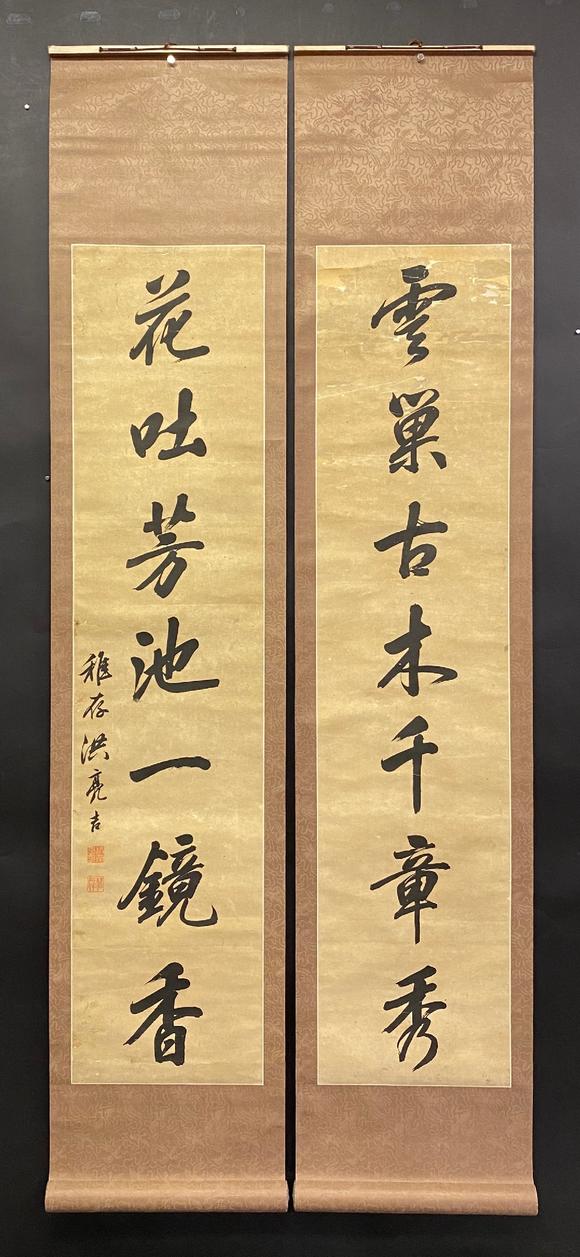 雲巢古木千章秀
花吐芳池一鏡香
稚存洪亮吉